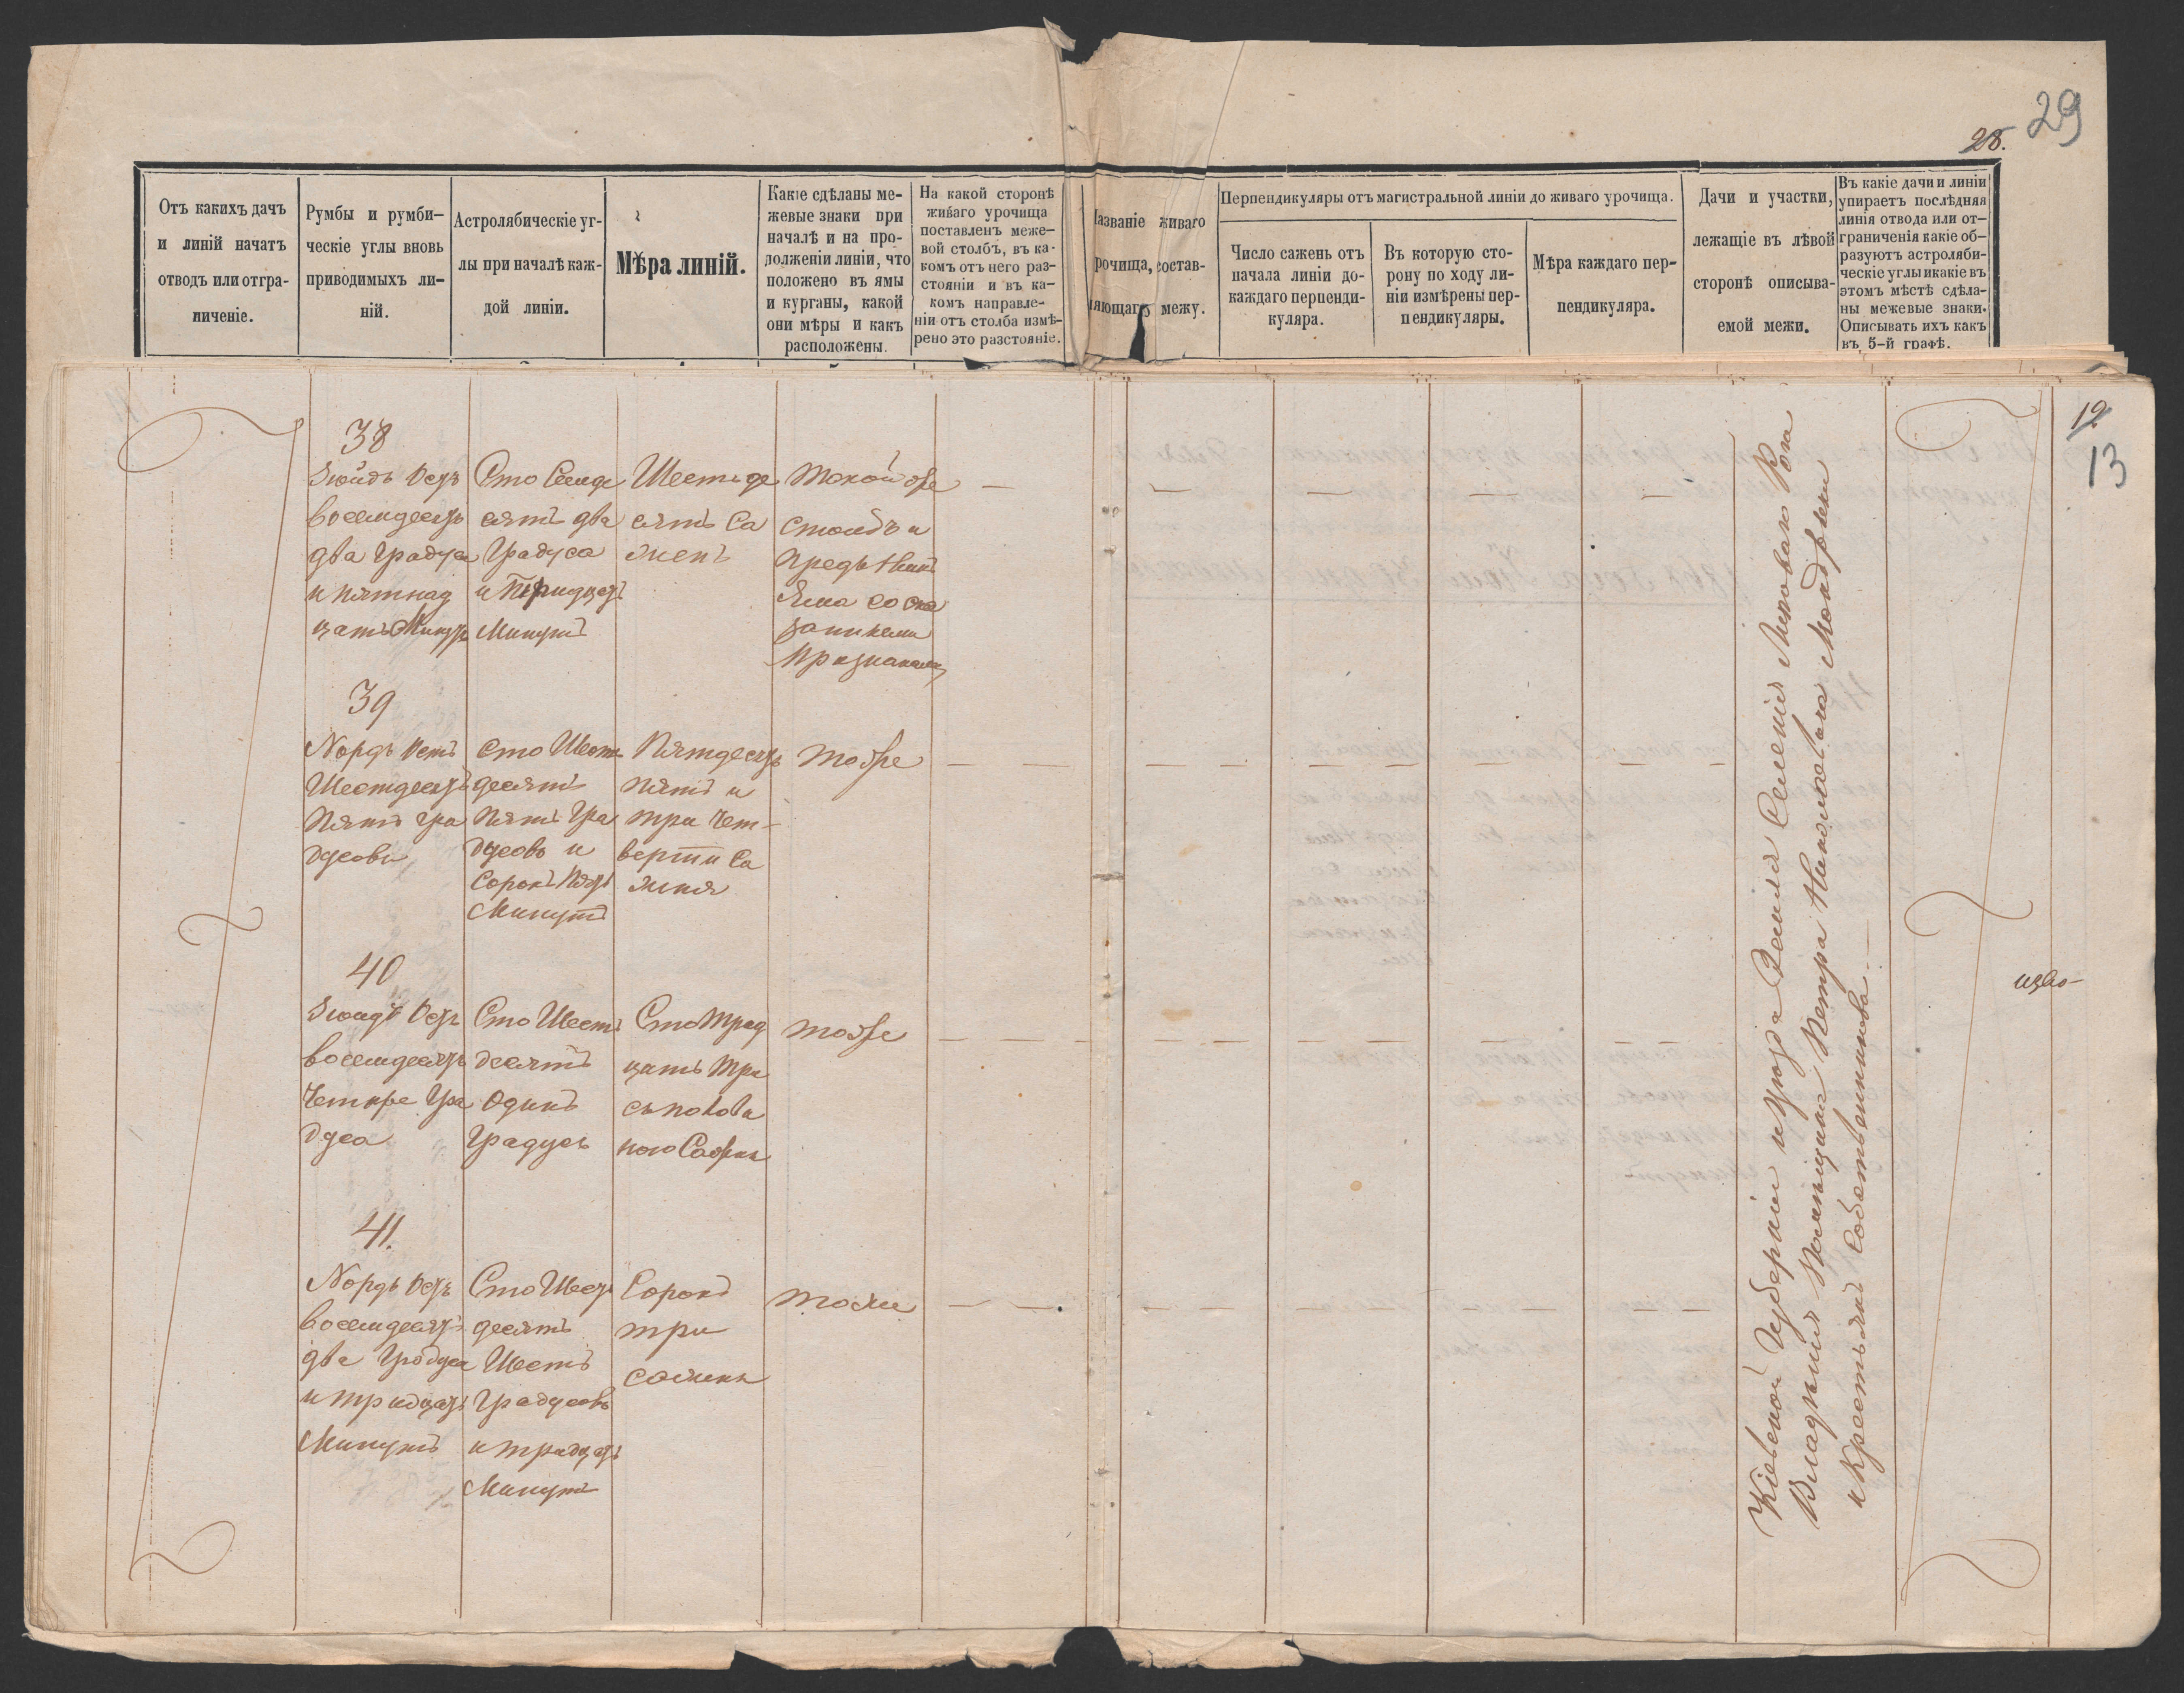 29
28.
Отъ какихъ дачъ
и линій начатъ
отводъ или отгра-
ниченіе.
Румбы и румби-
ческіе углы вновь
приводимыхъ ли-
ній.
Астролябическіе уг-
лы при началѣ каж-
дой линіи.
Мѣра линій.
Какіе сдѣланы ме-
жевые знаки при
началѣ и на про-
долженіи линіи, что
положено въ ямы
и курганы, какой
они мѣры и какъ
расположены.
На какой сторонѣ
живаго урочища
поставленъ меже-
вой столбъ, въ ка-
комъ отъ него раз-
стояніи и въ ка-
комъ направле-
ніи отъ столба измѣ-
рено это разстояніе.
Названіе живаго
рочища, состав-
ляющаго межу.
Перпендикуляры отъ магистральной линіи до живаго урочища.
Число сажень отъ
начала линіи до-
каждаго перпенди-
куляра.
Въ которую сто-
рону по ходу ли-
ніи измѣрены пер-
пендикуляры.
Мѣра каждаго пер-
пендикуляра.
Дачи и участки,
лежащіе въ лѣвой
сторонѣ описыва-
емой межи.
Въ какіе дачи и линіи
упираетъ послѣдняя
линія отвода или от-
граниченія какіе об-
разуютъ астроляби-
ческіе углы и какіе въ
этомъ мѣстѣ сдѣла-
ны межевые знаки.
Описывать ихъ какъ
въ 5-й графѣ.
12
13
38
Зюйдъ Вестъ
восемдесятъ
два градуса
и пятнад
цать Минутъ
Сто Семде
сятъ два
Градуса
и тридцать
Минутъ
Шестьде
сятъ Са
женъ
Такой же
столбъ и
предъ нимъ
Яма со ска
занними
признаками
39
Нордъ Вестъ
Шестдесятъ
Пять гра
дусовъ
Сто Шесть
десятъ
Пять Гра
дусовъ и
Сорокъ Пять
Минутъ
Пятдесятъ
пять и
три чет-
верти Са
женя
тоже
40
Зюидъ Вестъ
восемдесятъ
Четыре Гра
дуса
Сто Шесть
десятъ
Одинъ
Градусъ
Сто Трид
цать три
съ полови
ною Сажни
тоже
41.
Нордъ Вестъ
восемдесятъ
два Градуса
и тридцать
Минутъ
Сто Шесть
десятъ
Шесть
Градусовъ
и тридцать
Минутъ
Сорокъ
три
сажни
тоже
Кіевской Губерніи и уѣзда Земля Селенія Рога
Владѣнія Помѣщика Петра Николаевича
и Крестьянъ Собственниковъ